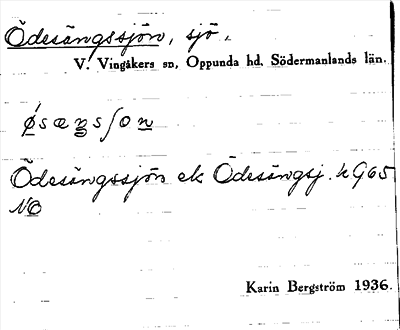 Ödesängssjön, sjö.
V. Vingåkers sn, Oppunda hd. Södermanlands län.
Ödesängssjön ek Ödesängsj. k G65
NO
Karin Bergström 1936.